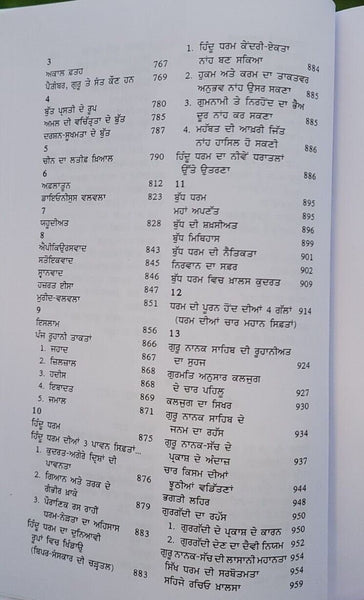 3
ਅਕਾਲ ਫ਼ਤਹ 767
ਪੈਗ਼ੰਬਰ, ਗੁਰੂ ਤੇ ਸੰਤ ਕੌਣ ਹਨ 769
4
ਬੁੱਤ ਪ੍ਰਸਤੀ ਦੇ ਰੂਪ 780
ਅਮਲ ਦੀ ਵਚਿੱਤ੍ਰਤਾ ਦੇ ਬੁੱਤ 785
ਦਰਸ਼ਨ-ਸੂਖਮਤਾ ਦੇ ਬੁੱਤ 787
5
ਚੀਨ ਦਾ ਲਤੀਫ਼ ਖ਼ਿਆਲ 790
6
ਅਫ਼ਲਾਤੂਨ 812
ਡਾਇਓਨੀਸੁਸ ਵਲਵਲਾ 823
7
ਯਹੂਦੀਅਤ 828
8
ਐਪੀਕਿਊਰਸਵਾਦ 843
ਸਤੋਇਕਵਾਦ 845
ਸ੍ਵਾਨਵਾਦ 845
ਹਜ਼ਰਤ ਈਸਾ 847
ਮੁਰੀਦ-ਵਲਵਲਾ 851
9
ਇਸਲਾਮ 856
ਪੰਜ ਰੂਹਾਨੀ ਤਾਕਤਾਂ 866
1. ਜਹਾਦ 866
2. ਜ਼ਿਲਜ਼ਾਲ 867
3. ਹਦੀਸ 868
4. ਇਬਾਦਤ 868
5. ਜਮਾਲ 871
10
ਹਿੰਦੂ ਧਰਮ 875
ਹਿੰਦੂ ਧਰਮ ਦੀਆਂ 3 ਪਾਵਨ ਸਿਫ਼ਤਾਂ...
1. ਕੁਦਰਤ-ਅਗੰਰੇ ਦ੍ਰਿਸ਼ਾਂ ਦੀ
ਪਾਵਨਤਾ 876
2. ਗਿਆਨ ਅਤੇ ਤਰਕ ਦੇ
ਗੰਭੀਰ ਖ਼ਾਕੇ 879
3. ਪੌਰਾਣਿਕ ਰਸ ਰਾਹੀਂ
ਧਰਮ-ਨੇੜਤਾ ਦਾ ਅਹਿਸਾਸ 883
ਹਿੰਦੂ ਧਰਮ ਦਾ ਦੁਨਿਆਵੀ
ਰੂਪਾਂ ਵਿਚ ਖਿੰਡਾਉ
(ਬਿਪਰ-ਸੰਸਕਾਰ ਦੀ ਚੜ੍ਹਤਲ) 883
1. ਹਿੰਦੂ ਧਰਮ ਕੇਂਦਰੀ-ਏਕਤਾ
ਨਾਂਹ ਬਣ ਸਕਿਆ 884
2. ਹੁਕਮ ਅਤੇ ਕਰਮ ਦਾ ਤਾਕਤਵਰ
ਅਨੁਭਵ ਨਾਂਹ ਉਸਰ ਸਕਣਾ 885
3. ਗੁਮਨਾਮੀ ਤੇ ਨਿਰਹੋਂਦ ਦਾ ਭੈਅ
ਦੂਰ ਨਾਂਹ ਕਰ ਸਕਣਾ 885
4. ਮਹੱਬਤ ਦੀ ਆਖ਼ਰੀ ਜਿੱਤ
ਨਾਂਹ ਹਾਸਿਲ ਹੋ ਸਕਣੀ 886
ਹਿੰਦੂ ਧਰਮ ਦਾ ਨੀਵੇਂ ਧਰਾਤਲਾਂ
ਉੱਤੇ ਉਤਰਣਾ 886
11
ਬੁੱਧ ਧਰਮ 895
ਮਹਾਂ ਅਪਣੱਤ 895
ਬੁੱਧ ਦੀ ਸ਼ਖ਼ਸੀਅਤ 896
ਬੁੱਧ ਮਿਥਿਹਾਸ 899
ਬੁੱਧ ਧਰਮ ਦੀ ਨੈਤਿਕਤਾ 901
ਨਿਰਵਾਨ ਦਾ ਸਫ਼ਰ 902
ਬੁੱਧ ਧਰਮ ਵਿਚ ਖ਼ਾਲਸ ਕੁਦਰਤ 909
12
ਧਰਮ ਦੀ ਪੂਰਨ ਹੋਂਦ ਦੀਆਂ 4 ਗੱਲਾਂ 914
(ਧਰਮ ਦੀਆਂ ਚਾਰ ਮਹਾਨ ਸਿਫ਼ਤਾਂ)
13
ਗੁਰੂ ਨਾਨਕ ਸਾਹਿਬ ਦੀ ਰੂਹਾਨੀਅਤ
ਦਾ ਸੁਹਜ 924
ਗੁਰਮਤਿ ਅਨੁਸਾਰ ਕਲਜੁਗ
ਦੇ ਚਾਰ ਪਹਿਲੂ 927
ਕਲਜੁਗ ਦਾ ਸਿਖਰ 930
ਗੁਰੂ ਨਾਨਕ ਸਾਹਿਬ ਦੇ
ਜਨਮ ਦਾ ਰਹੱਸ 934
ਗੁਰੂ ਨਾਨਕ-ਸੱਚ ਦੇ
ਪ੍ਰਕਾਸ਼ ਦੇ ਅੰਦਾਜ਼ 937
ਚਾਰ ਕਿਸਮ ਦੀਆਂ
ਝੂਠੀਆਂ ਵਡਿੱਤਣਾਂ 944
ਭਗਤੀ ਲਹਿਰ 948
ਗੁਰਗੱਦੀ ਦਾ ਰਹੱਸ 950
1. ਗੁਰਗੱਦੀ ਦੇ ਪ੍ਰਕਾਸ਼ ਦੇ ਕਾਰਨ 950
2. ਗੁਰਗੱਦੀ ਦੇਣ ਦਾ ਦੈਵੀ ਨਿਯਮ 952
ਗੁਰੂ ਨਾਨਕ-ਸੱਚ ਦੀ ਲਾਸਾਨੀ ਮਹਾਨਤਾ 954
ਸਿੱਖ ਧਰਮ ਦੀ ਸਰਬੋਤਮਤਾ 954
ਸਹਿਜੇ ਰਚਿਓ ਖ਼ਾਲਸਾ 959